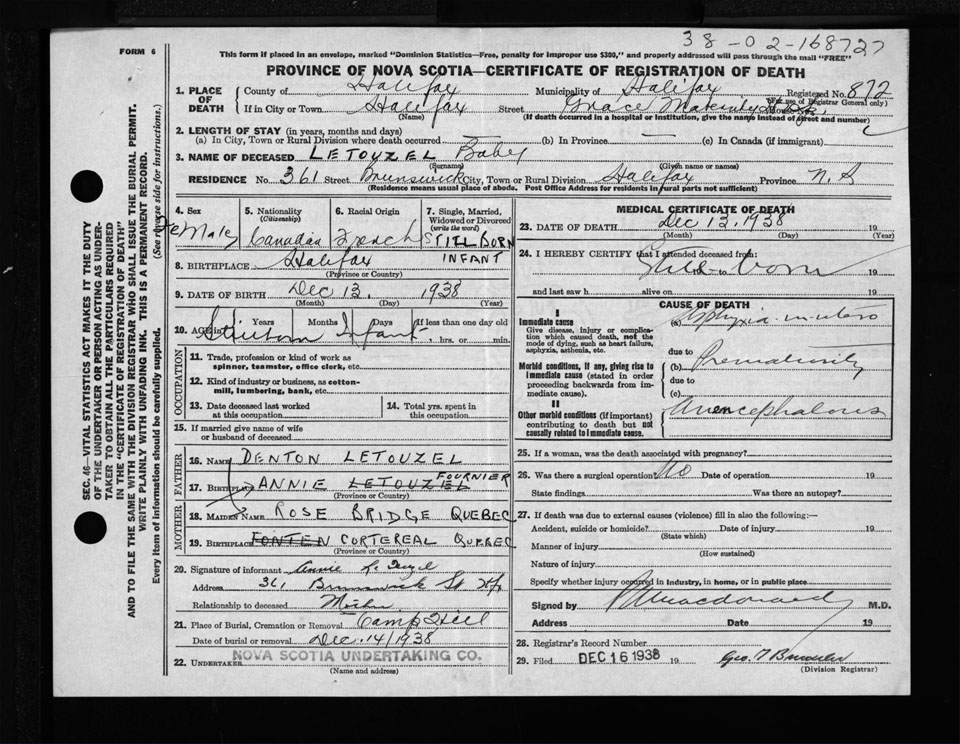 38-02-168727
FORM 6
This form if placed in an envelope, marked "Dominion Statistics—Free, penalty for improper use $300," and properly addressed will pass through the mail "FREE"
PROVINCE OF NOVA SCOTIA—CERTIFICATE OF REGISTRATION OF DEATH
1. PLACE OF DEATH County of Halifax Municipality of Halifax Registered No. 872
(For use of Registrar General only)
If in City or Town Halifax Street Grace Maternity Hosp.
(Name) (If death occurred in a hospital or institution, give the name instead of street and number)
2. LENGTH OF STAY (in years, months and days)
(a) In City, Town or Rural Division where death occurred — (b) In Province — (c) In Canada (if immigrant)
3. NAME OF DECEASED LETOUZEL Baby
(Surname) (Given name or names)
RESIDENCE No. 361 Street Brunswick City, Town or Rural Division Halifax Province N.S
(Residence means usual place of abode. Post Office Address for residents in rural parts not sufficient)
4. Sex Female
5. Nationality (Citizenship) Canadian
6. Racial Origin French
7. Single, Married, Widowed or Divorced (write the word) STILL BORN INFANT
8. BIRTHPLACE Halifax
(Province or Country)
9. DATE OF BIRTH Dec 13. 1938
(Month) (Day) (Year)
10. AGE in Years Months Days If less than one day old
Stillborn Infant hrs. or min.
OCCUPATION
11. Trade, profession or kind of work as spinner, teamster, office clerk, etc.
12. Kind of industry or business, as cotton-mill, lumbering, bank, etc.
13. Date deceased last worked at this occupation
14. Total yrs. spent in this occupation
15. If married give name of wife or husband of deceased
FATHER
16. NAME DENTON LETOUZEL
17. BIRTHPLACE ANNIE LETOUZEL FOURNIER
(Province or Country)
MOTHER
18. MAIDEN NAME ROSE BRIDGE QUEBEC
19. BIRTHPLACE FONTEN CORTEREAL QUEBEC
(Province or Country)
20. Signature of informant Annie LeTouzel
Address 361 Brunswick St Hfx
Relationship to deceased Mother
21. Place of Burial, Cremation or Removal Camp Hill
Date of burial or removal Dec. 14/1938
22. UNDERTAKER NOVA SCOTIA UNDERTAKING CO.
(Name and address)
MEDICAL CERTIFICATE OF DEATH
23. DATE OF DEATH Dec 13, 1938 19
(Month) (Day) (Year)
24. I HEREBY CERTIFY that I attended deceased from:
Still born 19 to 19
and last saw h alive on 19
CAUSE OF DEATH
I
Immediate cause
Give disease, injury or complication which caused death, not the mode of dying, such as heart failure, asphyxia, asthenia, etc.
(a) Asphyxia in utero
due to
Morbid conditions, if any, giving rise to immediate cause (stated in order proceeding backwards from immediate cause).
(b) Prematurity
due to
(c)
II
Other morbid conditions (if important) contributing to death but not causally related to immediate cause.
Anencephalous
25. If a woman, was the death associated with pregnancy?
26. Was there a surgical operation? No Date of operation 19
State findings Was there an autopsy?
27. If death was due to external causes (violence) fill in also the following:—
Accident, suicide or homicide? Date of injury 19
(State which)
Manner of injury
(How sustained)
Nature of injury
Specify whether injury occurred in industry, in home, or in public place
Signed by Macdonald M.D.
Address Date 19
28. Registrar's Record Number
29. Filed DEC 16 1938 19
(Division Registrar)
SEC. 46—VITAL STATISTICS ACT MAKES IT THE DUTY
OF THE UNDERTAKER OR PERSON ACTING AS UNDERTAKER
TO OBTAIN ALL THE PARTICULARS REQUIRED
IN THE "CERTIFICATE OF REGISTRATION OF DEATH"
AND TO FILE THE SAME WITH THE DIVISION REGISTRAR WHO SHALL ISSUE THE BURIAL PERMIT.
WRITE PLAINLY WITH UNFADING INK. THIS IS A PERMANENT RECORD.
Every item of information should be carefully supplied. (See reverse side for instructions.)